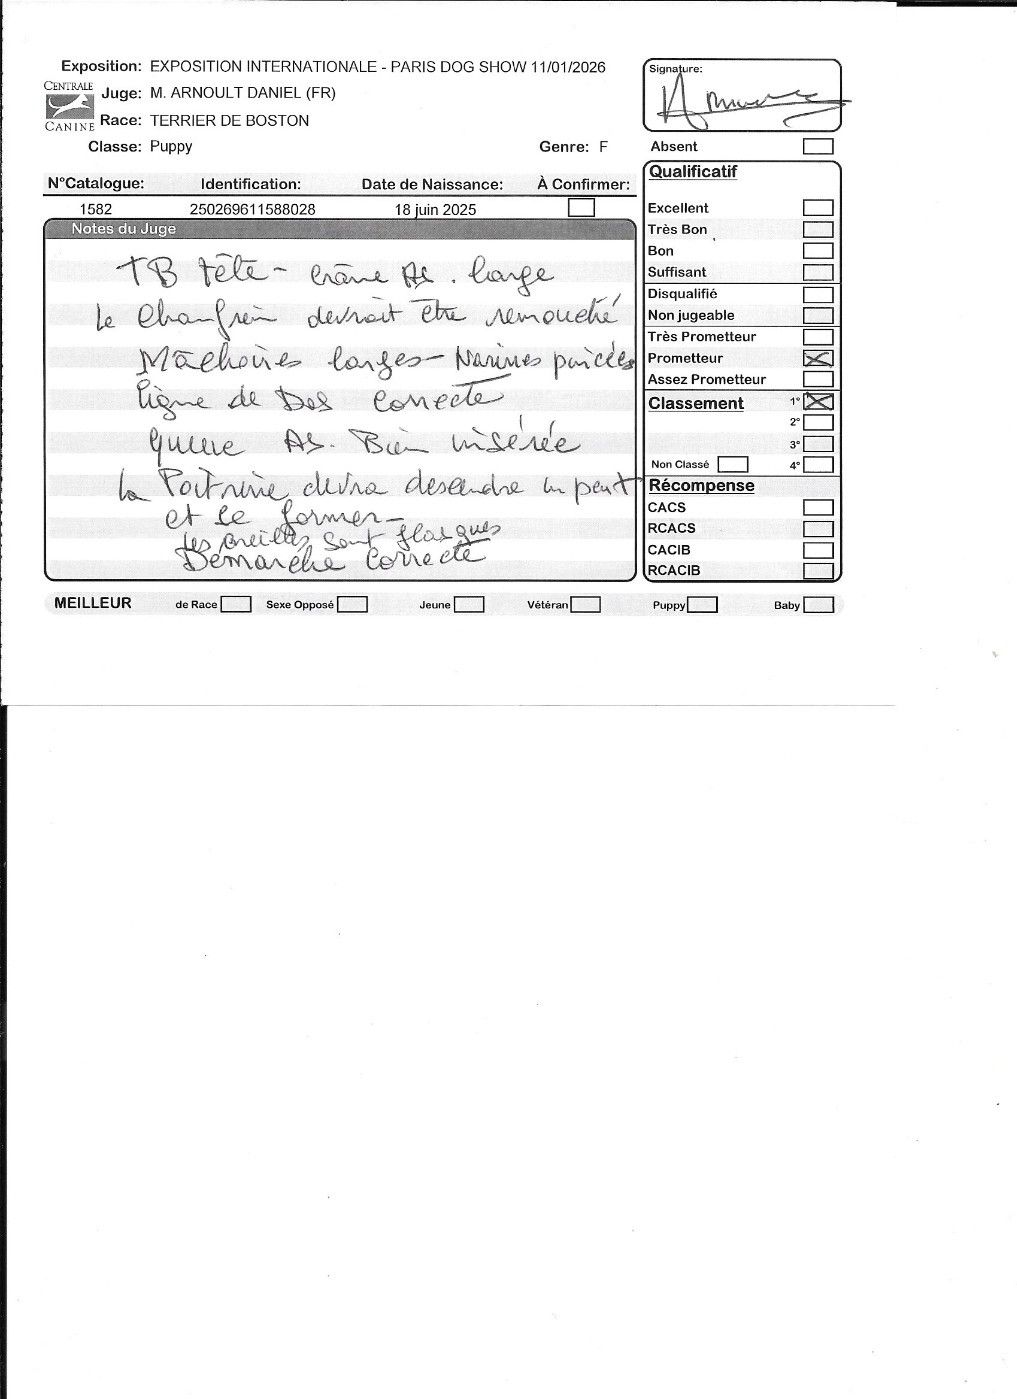 Exposition: EXPOSITION INTERNATIONALE - PARIS DOG SHOW 11/01/2026
CENTRALE CANINE
Juge: M. ARNOULT DANIEL (FR)
Race: TERRIER DE BOSTON
Classe: Puppy Genre: F
N°Catalogue: Identification: Date de Naissance: À Confirmer:
1582 250269611588028 18 juin 2025
Notes du Juge
TB tête - Crâne As. large
Le Chanfrein devrait être
Mâchoires larges - Narines
ligne de Dos Correcte
queue As. Bien insérée
la Poitrine devra desendre un peut
et se former -
les oreilles sont flasques
Démarche Correcte
Signature:
Absent
Qualificatif
Excellent
Très Bon
Bon
Suffisant
Disqualifié
Non jugeable
Très Prometteur
Prometteur X
Assez Prometteur
Classement 1° X
2°
3°
Non Classé 4°
Récompense
CACS
RCACS
CACIB
RCACIB
MEILLEUR de Race Sexe Opposé Jeune Vétéran Puppy Baby